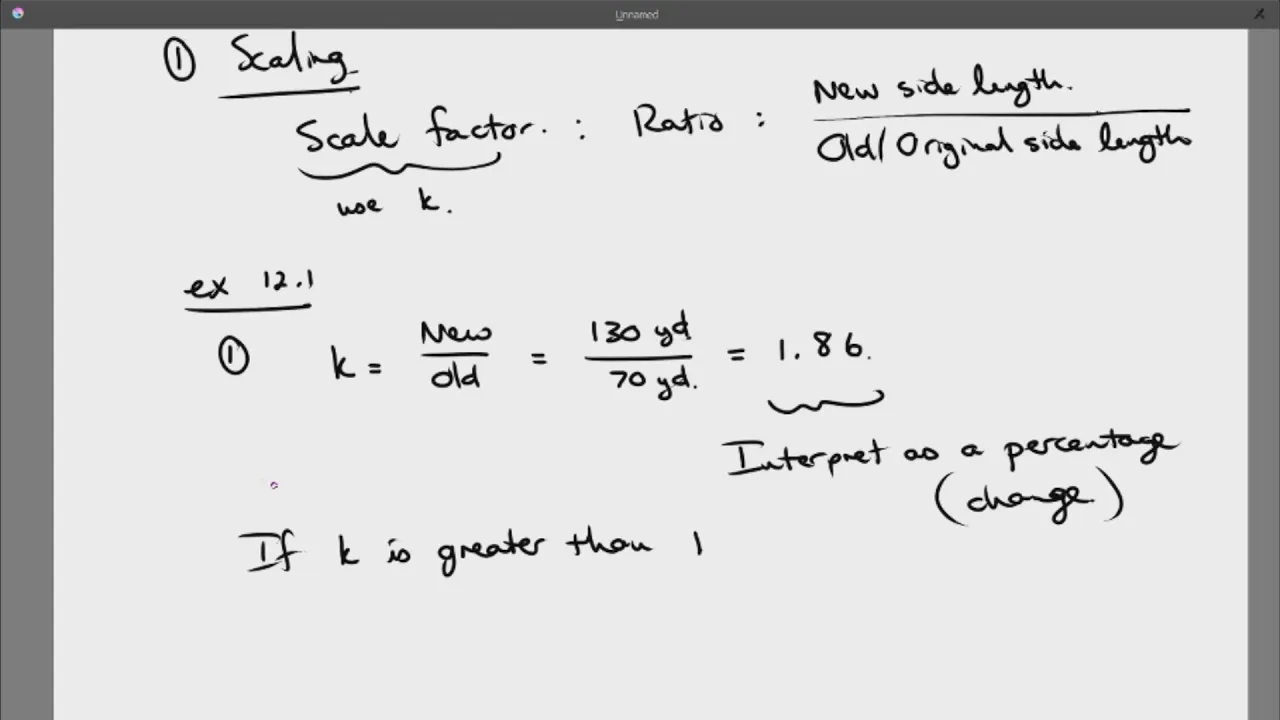 Unnamed
① Scaling
Scale factor. : Ratio : New side length. / Old/Original side length
use k.
ex 12.1
① k = New/Old = 130 yd/70 yd. = 1.86.
Interpret as a percentage
(change)
If k is greater than 1